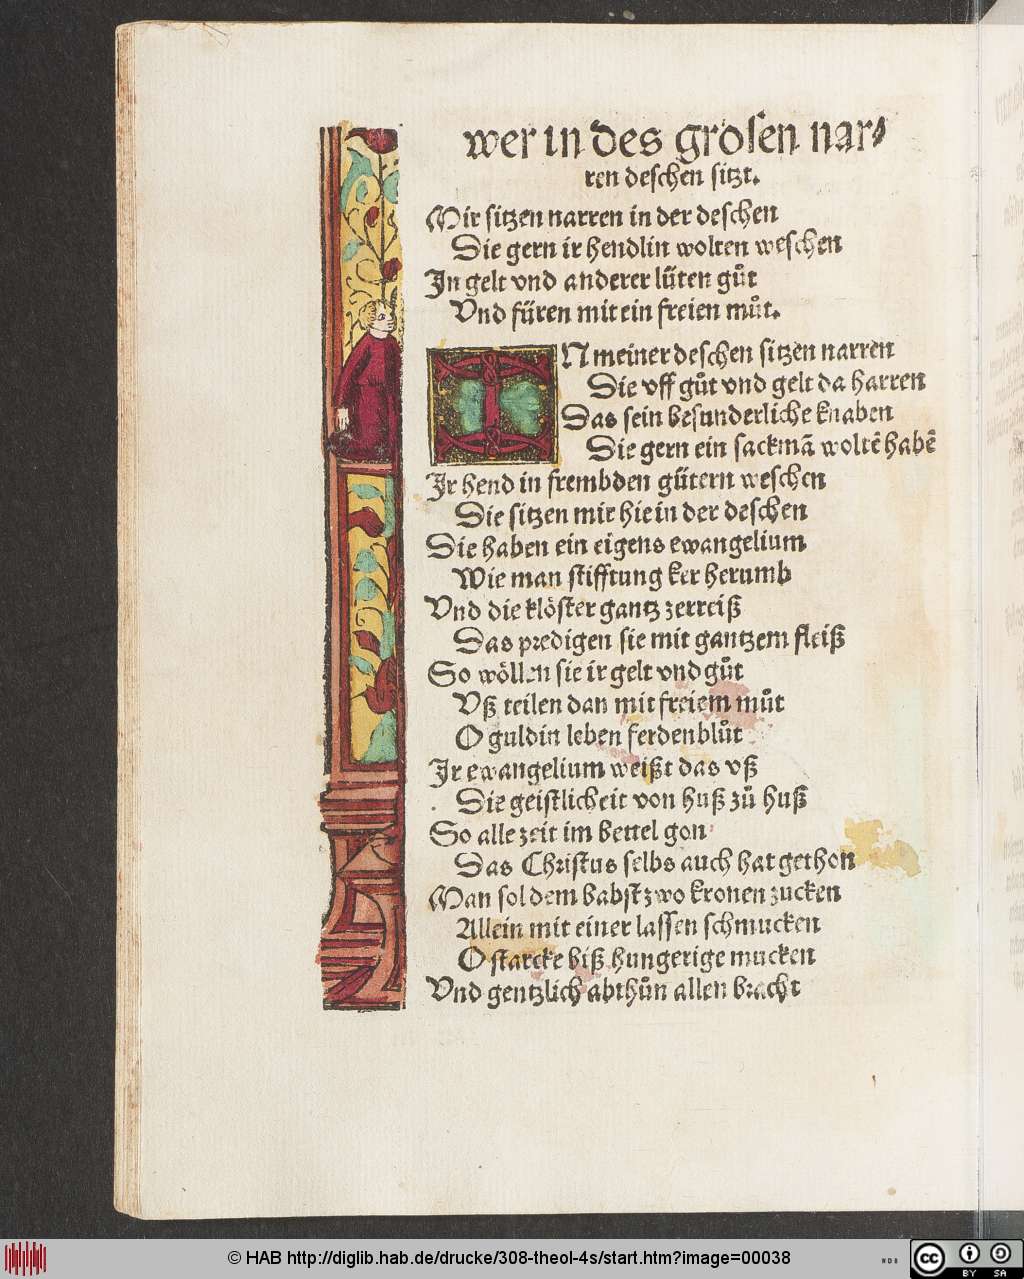 wer in des grosen nar⸗
ren deschen sitzt.
Mir sitzen narren in der deschen
Die gern ir hendlin wolten weschen
In gelt vnd anderer lüten guͦt
Vnd füren mit ein freien muͦt.
IN meiner deschen sitzen narren
Die vff guͦt vnd gelt da harren
Das sein besunderliche knaben
Die gern ein sackmā woltē habē
Ir hend in frembden gütern weschen
Die sitzen mir hie in der deschen
Die haben ein eigens ewangelium
Wie man stifftung ker herumb
Vnd die klöster gantz zerreiß
Das predigen sie mit gantzem fleiß
So wöllen sie ir gelt vnd guͦt
Vß teilen dan mit freiem muͦt
O guldin leben ferdenbluͦt
Ir ewangelium weißt das vß
Die geistlicheit von huß zuͦ huß
So alle zeit im bettel gon
Das Christus selbs auch hat gethon
Man sol dem babst zwo kronen zucken
Allein mit einer lassen schmucken
O starcke biß hungerige mucken
Vnd gentzlich abthuͦn allen bracht
© HAB http://diglib.hab.de/drucke/308-theol-4s/start.htm?image=00038
cc BY SA